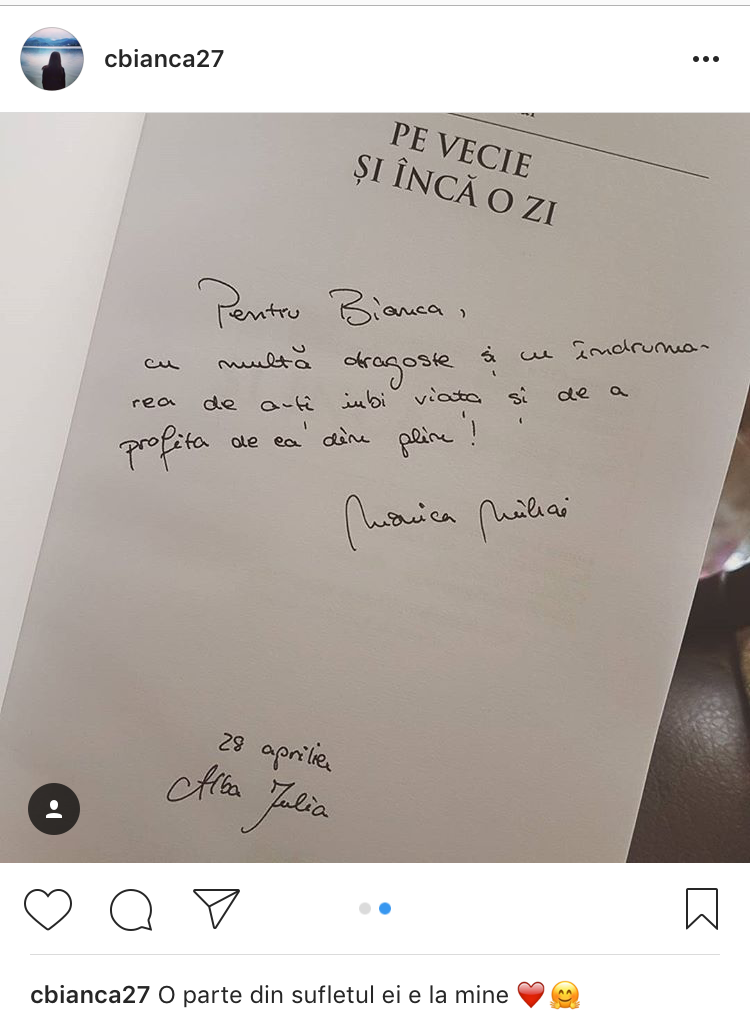 cbianca27
PE VECIE
ȘI ÎNCĂ O ZI
Pentru Bianca,
cu multă dragoste și cu îndruma-
rea de a-ți iubi viața și de a
profita de ea din plin!
Monica Mihai
28 aprilie
Alba Iulia
cbianca27 O parte din sufletul ei e la mine ❤️🤗